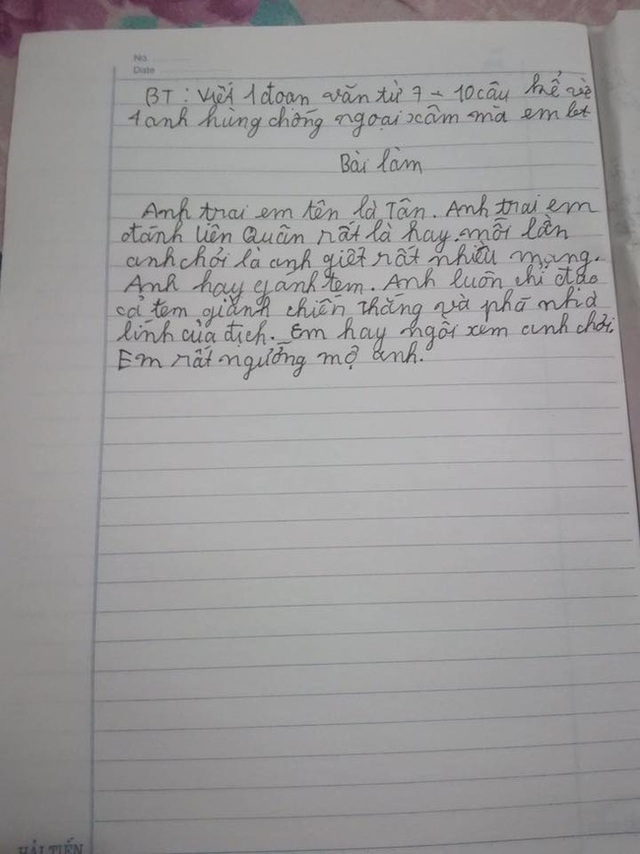 No.
Date
BT: Viết 1 đoạn văn từ 7 - 10 câu kể về
1 anh hùng chống ngoại xâm mà em biết
Bài làm
Anh trai em tên là Tân. Anh trai em
đánh Liên Quân rất là hay. mỗi lần
anh chơi là anh giết rất nhiều mạng.
Anh hay gánh tem. Anh luôn chỉ đạo
cả tem giành chiến thắng và phá nhà
lính của địch. Em hay ngồi xem anh chơi.
Em rất ngưỡng mộ anh.
HẢI TIẾN